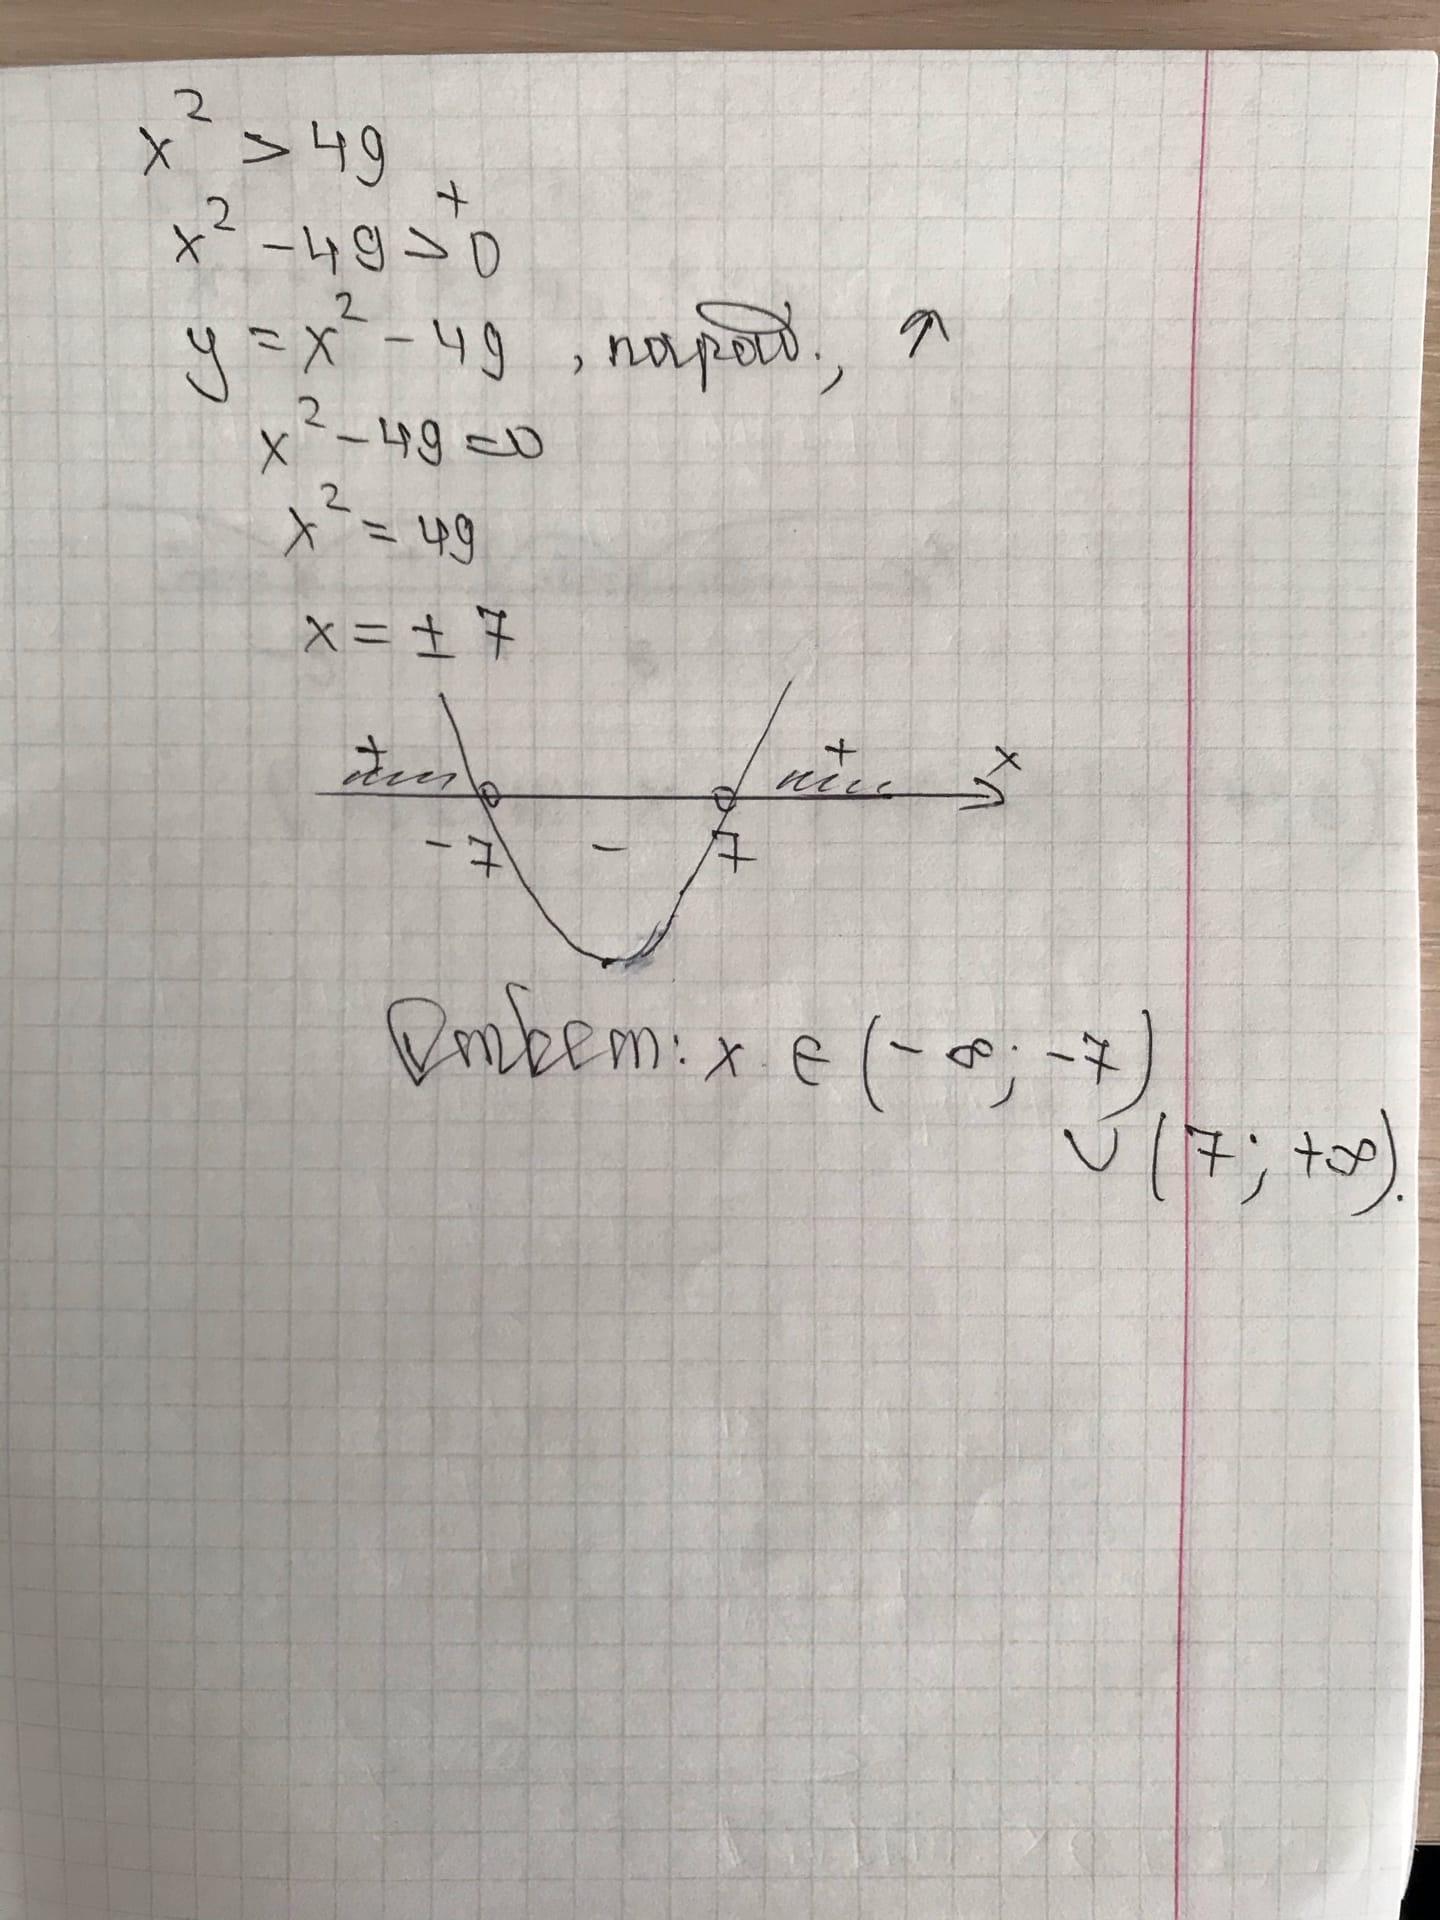 x² > 49
+
x² - 49 > 0
y = x² - 49, параб., ↑
x² - 49 = 0
x² = 49
x = ± 7
+ + x
-7 - 7
Ответ: x ∈ (-∞; -7)
∪ (7; +∞).